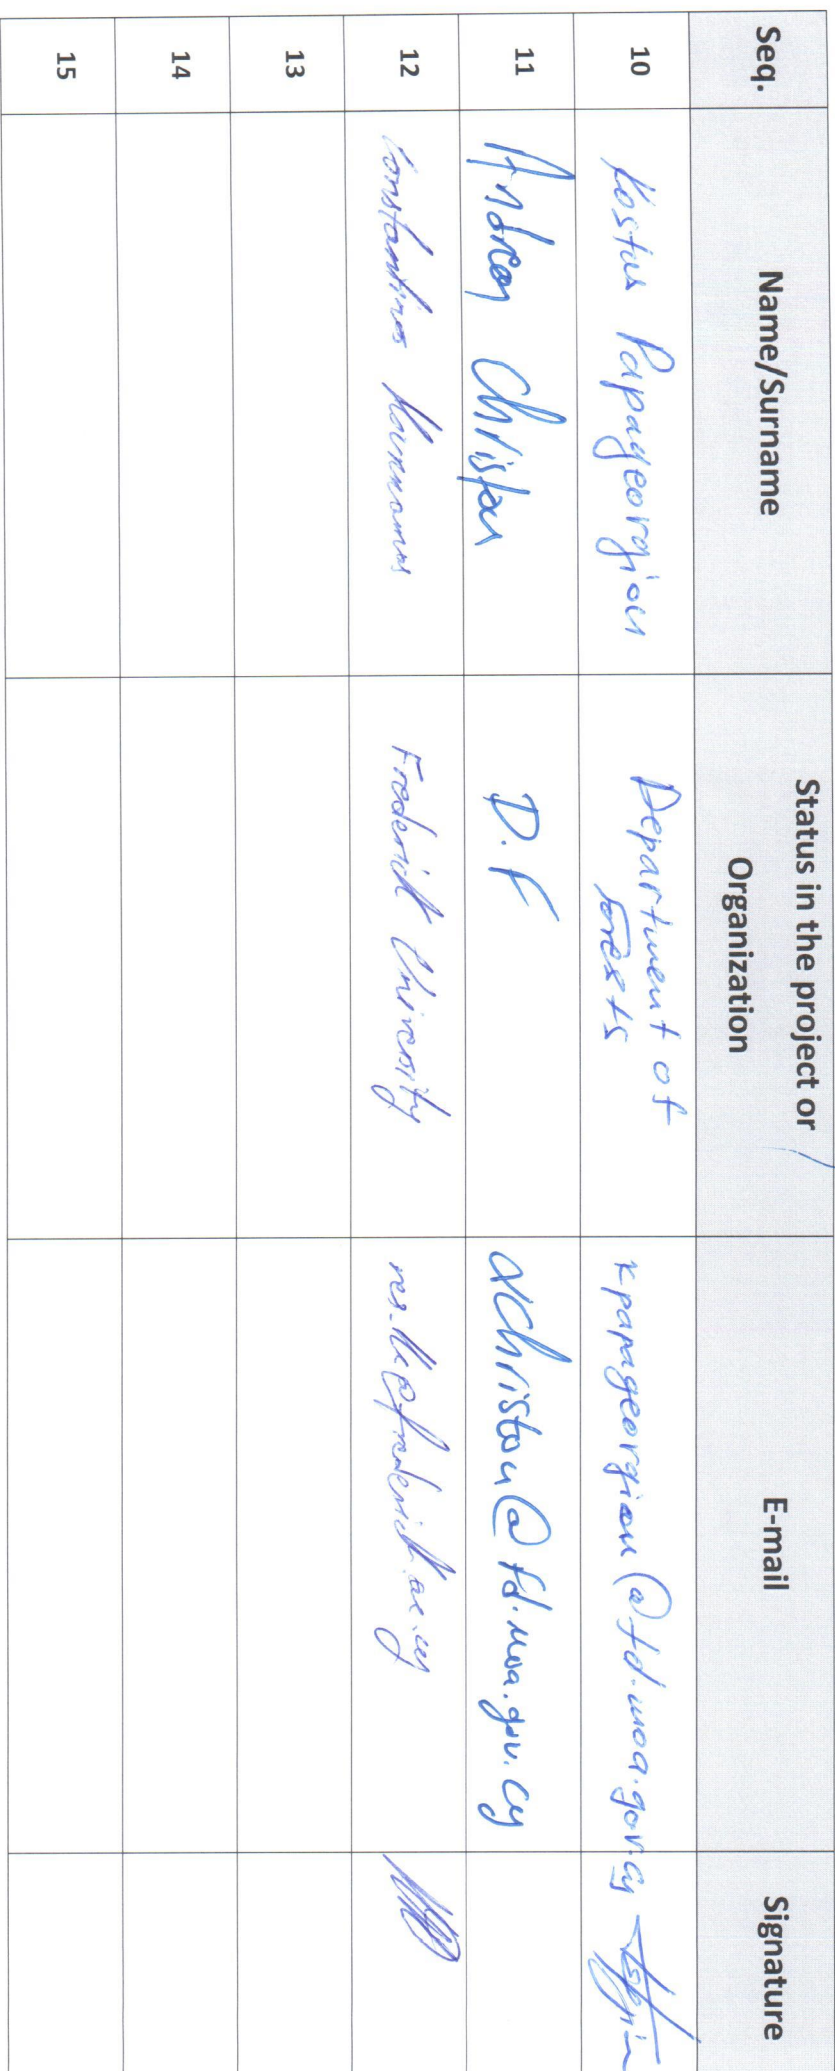 Seq.
Name/Surname
Status in the project or
Organization
E-mail
Signature
10
Kostas Papageorgiou
Department of
Forests
kpapageorgiou@fd.moa.gov.cy
11
Andreas Christou
D.F
achristou@fd.moa.gov.cy
12
Constantinos
Frederick University
13
14
15